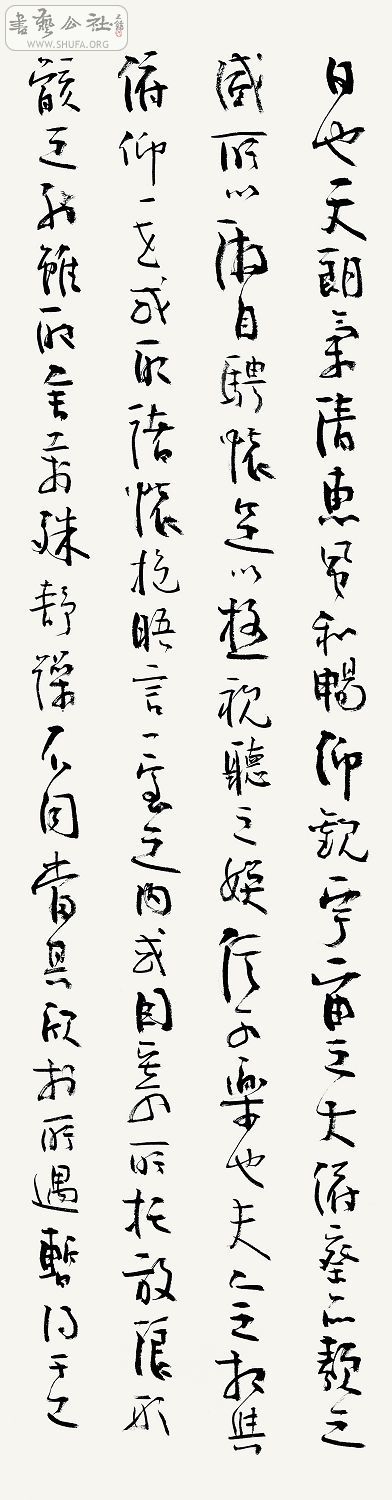 書藝公社
WWW.SHUFA.ORG
日也天朗氣清惠風和暢仰觀宇宙之大俯察品類之
盛所以遊目騁懷足以極視聽之娛信可樂也夫人之相與
俯仰一世或取諸懷抱晤言一室之內或因寄所托放浪形
骸之外雖取舍萬殊靜躁不同當其欣於所遇暫得于己